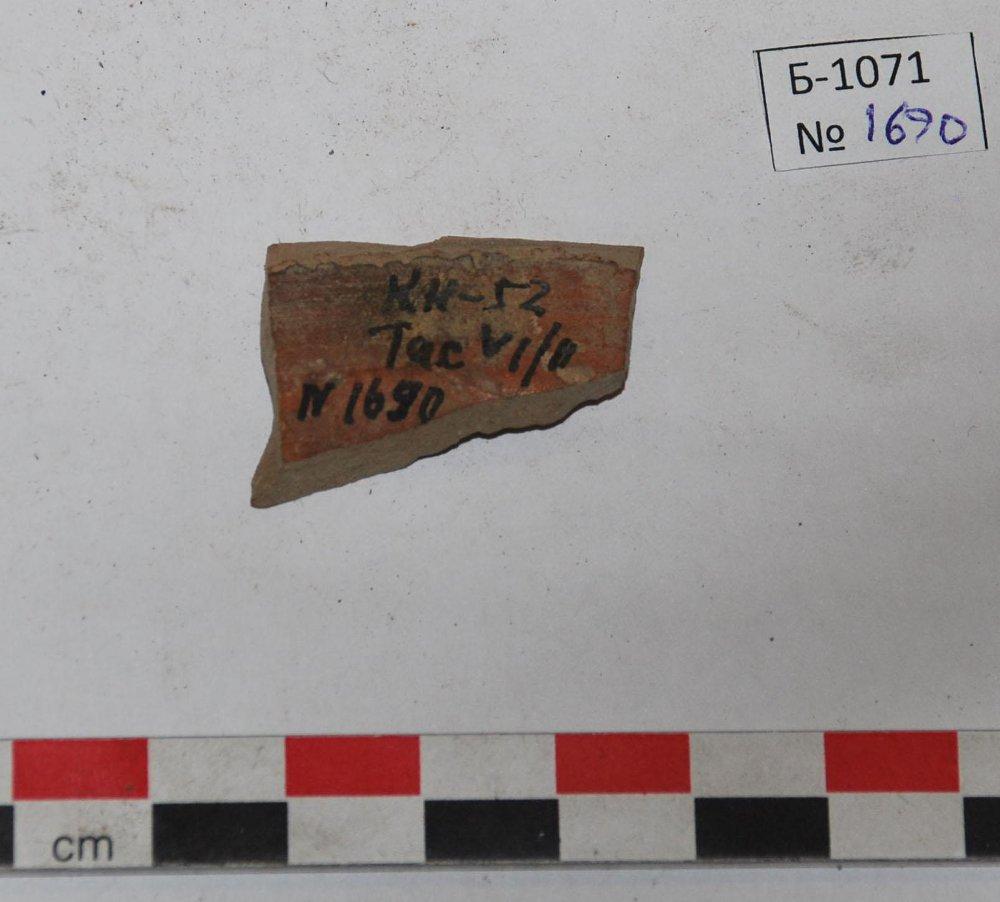 Б-1071
№ 1690
КН-52
Тас VI/II
N 1690
cm